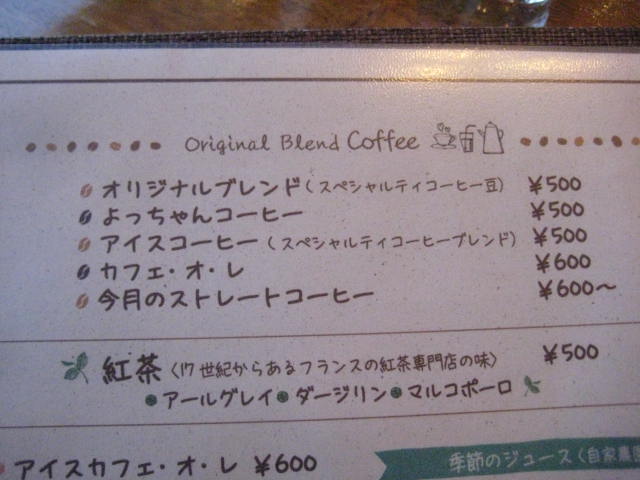 Original Blend Coffee
オリジナルブレンド(スペシャルティコーヒー豆) ¥500
よっちゃんコーヒー ¥500
アイスコーヒー(スペシャルティコーヒーブレンド) ¥500
カフェ・オ・レ ¥600
今月のストレートコーヒー ¥600〜
紅茶〈17世紀からあるフランスの紅茶専門店の味〉 ¥500
アールグレイ ダージリン マルコポーロ
アイスカフェ・オ・レ ¥600
季節のジュース(自家農園